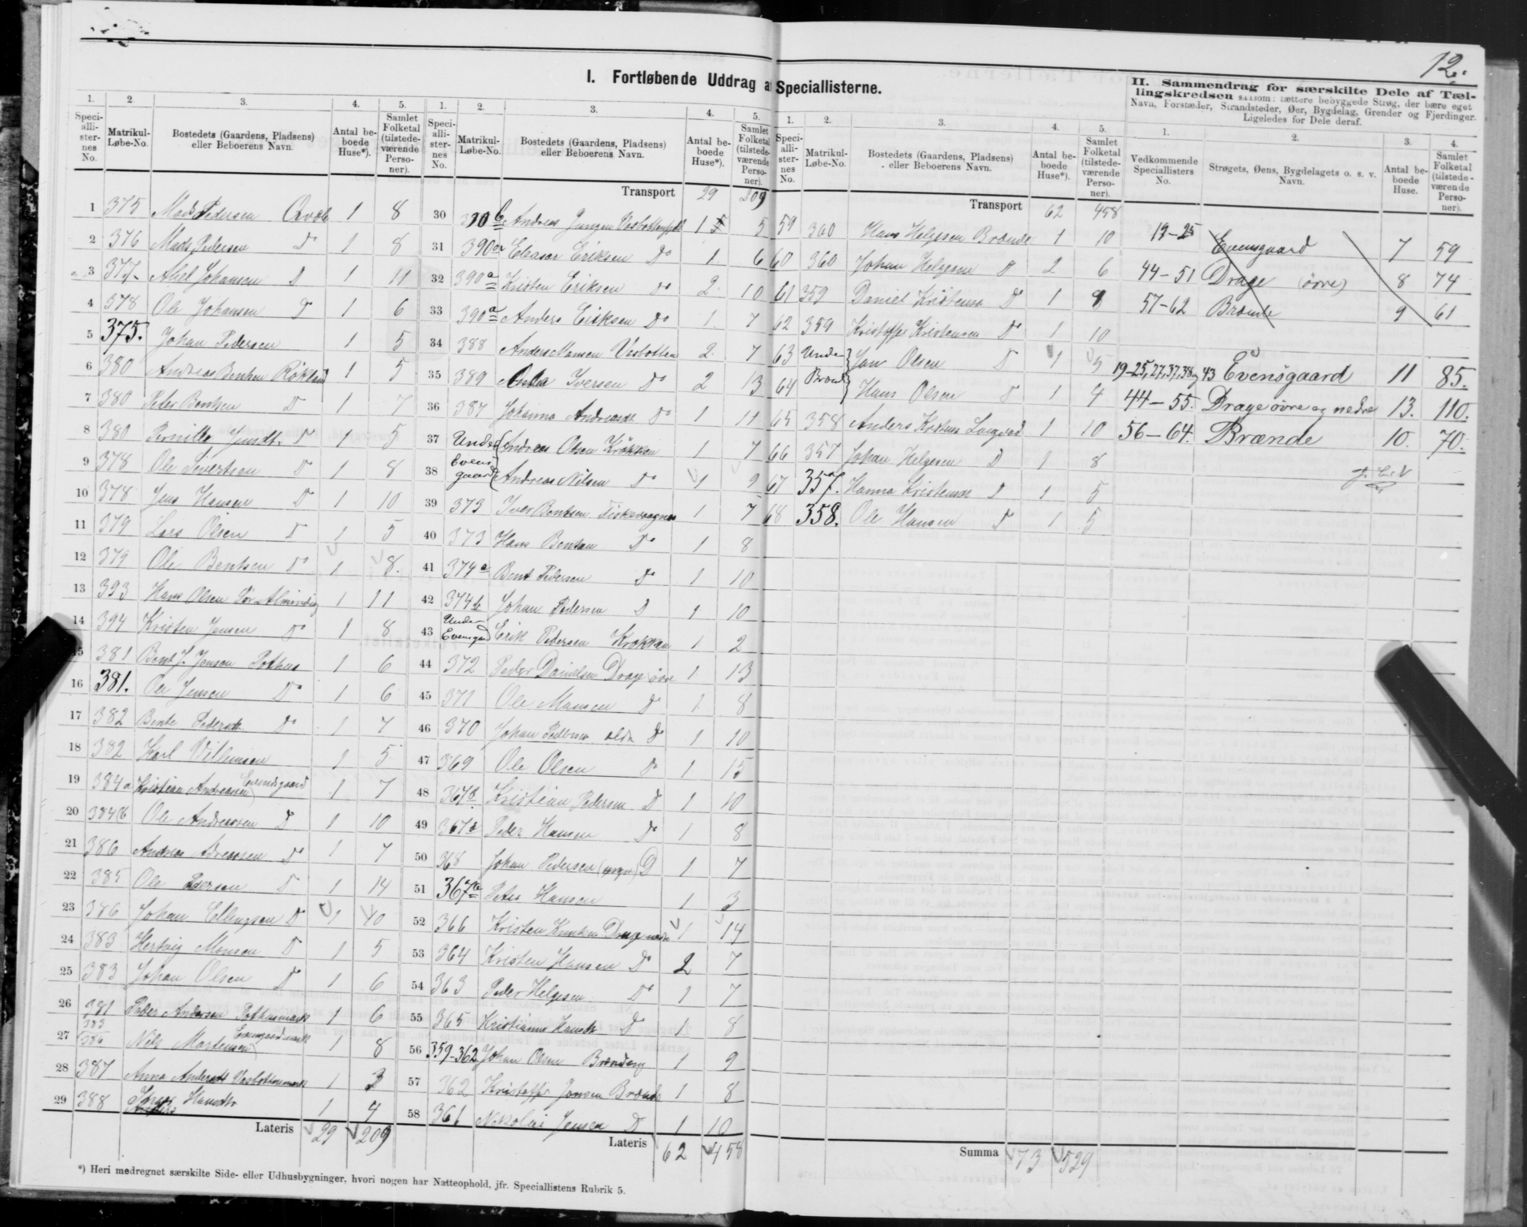 12.
I. Fortløbende Uddrag a Speciallisterne.
II. Sammendrag for særskilte Dele af Tæl-
lingskredsen saasom: tættere bebyggede Strøg, der bære eget
Navn, Forstæder, Strandsteder, Øer, Bygdelag, Grender og Fjerdinger.
Ligeledes for Dele deraf.
1. 2. 3. 4. 5.
Speci-alli-ster-nes No. Matrikul-Løbe-No. Bostedets (Gaardens, Pladsens) eller Beboerens Navn. Antal be-boede Huse*). Samlet Folketal (tilstede-værende Perso-ner).
1 375 Mads Pedersen 1 8
2 376 Mads Pedersen Do 1 8
3 377 Axel Johansen D 1 11
4 578 Ole Johansen 1 6
5 375. Johan Pedersen 1 5
6 380 Andreas Bentsen Røkland 1 5
7 380 Peter Bentsen D 1 7
8 380 Pernille D 1 5
9 378 Ole Sivertsen D 1 8
10 378 Jens Hansen D 1 10
11 379 Lars Olsen D 1 5
12 379 Ole Bentsen Do 1 8.
13 393 Hans Olsen 1 11
14 394 Kristen Jensen Do 1 8
15 381 Bent J. Jensen Pothus 1 6
16 381. Jensen Do 1 6
17 382 Bente Do 1 7
18 382 Karl 1 5
19 384a Kristian Andreasen Evensgaard 1 7
20 384b Ole Andreasen D 1 10
21 386 Andreas Do 1 7
22 385 Ole Iversen D 1 14
23 386 Johan Ellingsen D 1 10
24 383 Hertvig Monsen D 1 5
25 383 Johan Olsen D 1 6
26 381 Peder Andersen 1 6
27 Nils Mortensen 1 8
28 387 Anna 1 3
29 388 1 7
Lateris 29 209
1. 2. 3. 4. 5.
Speci-alli-ster-nes No. Matrikul-Løbe-No. Bostedets (Gaardens, Pladsens) eller Beboerens Navn. Antal be-boede Huse*). Samlet Folketal (tilstede-værende Perso-ner).
Transport 29 209
30 390b Andreas 1 5
31 390a Eleasar Eriksen Do 1 6
32 390a Kristen Eriksen Do 2 10
33 390a Anders Eriksen Do 1 7
34 388 Anders Monsen Vesbotten 2 7
35 389 Iversen Do 2 13
36 387 Johanna Do 1 11
37 Under Andreas Olsen 1 7
38 Evens gaard Andreas Nilsen Do 1 9
39 373 Iver Bentsen 1 7
40 373 Hans Bentsen Do 1 8
41 374a Bent Pedersen Do 1 10
42 374b Johan Pedersen D 1 10
43 Under Evensgd Erik Pedersen 1 2
44 372 Peder Danielsen Drage øvre 1 13
45 371 Ole Monsen D 1 8
46 370 Johan Pedersen D 1 10
47 369 Ole Olsen Do 1 15
48 367 Kristian Pedersen D 1 10
49 367 Peder Hansen Do 1 8
50 368 Johan Pedersen D 1 7
51 367 Hansen 1 3
52 366 Kristen 1 14
53 364 Kristen Hansen Do 2 7
54 363 Peder Helgesen Do 1 7
55 365 Kristianna D 1 8
56 359-362 Johan Olsen 1 9
57 362 Kristoffer Jonsen 1 8
58 361 Nikolai Jensen D 1 10
Lateris 62 458
1. 2. 3. 4. 5.
Speci-alli-ster-nes No. Matrikul-Løbe-No. Bostedets (Gaardens, Pladsens) eller Beboerens Navn. Antal be-boede Huse*). Samlet Folketal (tilstede-værende Perso-ner).
Transport 62 458
59 360 Hans Helgesen Brænde 1 10
60 360 Johan Helgesen D 2 6
61 359 Daniel D 1 9
62 359 Kristoffer Kristensen Do 1 10
63 Under Jens Olsen D 1 5
64 Brænd Hans Olsen D 1 4
65 358 Anders 1 10
66 357 Johan Helgesen D 1 8
67 357. Hanna D 1 5
68 358. Ole Hansen D 1 5
Summa 73 529
1. 2. 3. 4.
Vedkommende Speciallisters No. Strøgets, Øens, Bygdelagets o. s. v. Navn. Antal be-boede Huse. Samlet Folketal (tilstede-værende Perso-ner).
19-25 Evensgaard 7 59
44-51 Drage (øvre) 8 74
57-62 Brænde 9 61
19-25, 27, 37, 38, 43 Evensgaard 11 85.
44-55. Drage øvre og nedre 13. 110.
56-64. Brænde 10. 70.
*) Heri medregnet særskilte Side- eller Udhusbygninger, hvori nogen har Natteophold, jfr. Speciallistens Rubrik 5.